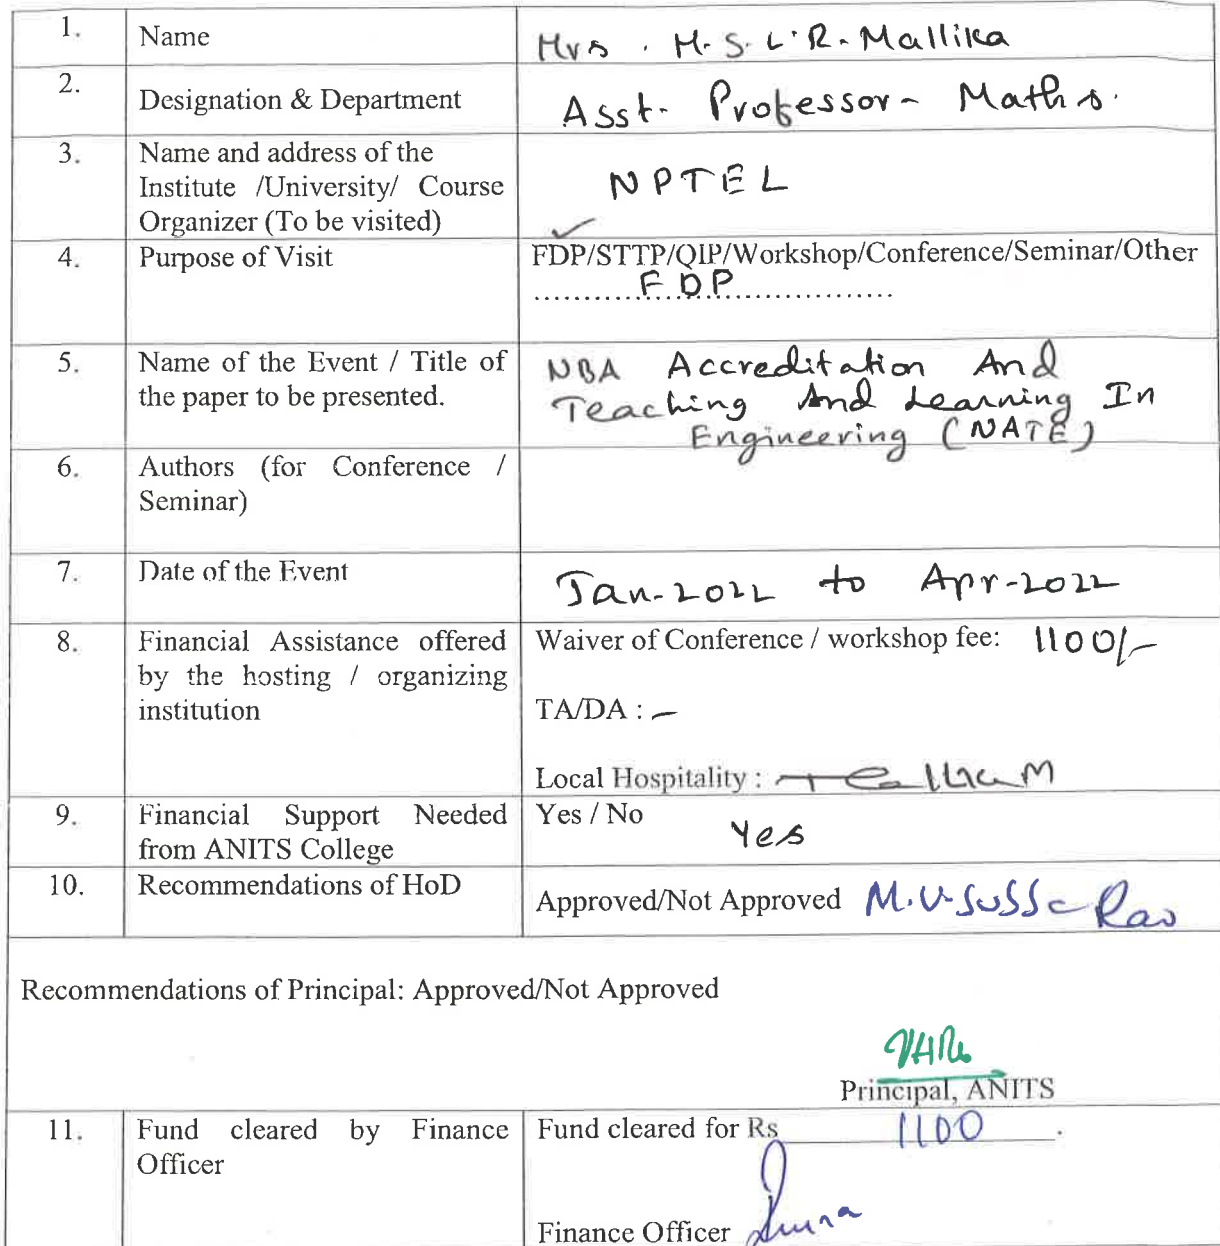 1. Name Mrs. M.S.L.R.Mallika
2. Designation & Department Asst. Professor - Maths.
3. Name and address of the
Institute /University/ Course
Organizer (To be visited)
NPTEL
4. Purpose of Visit FDP/STTP/QIP/Workshop/Conference/Seminar/Other
FDP
5. Name of the Event / Title of
the paper to be presented.
NBA Accreditation And
Teaching And Learning In
Engineering (NATE)
6. Authors (for Conference /
Seminar)
7. Date of the Event Jan-2022 to Apr-2022
8. Financial Assistance offered
by the hosting / organizing
institution
Waiver of Conference / workshop fee: 1100/-
TA/DA : -
Local Hospitality :
9. Financial Support Needed
from ANITS College
Yes / No
Yes
10. Recommendations of HoD Approved/Not Approved M.V.Subba Rao
Recommendations of Principal: Approved/Not Approved
Principal, ANITS
11. Fund cleared by Finance
Officer
Fund cleared for Rs 1100.
Finance Officer